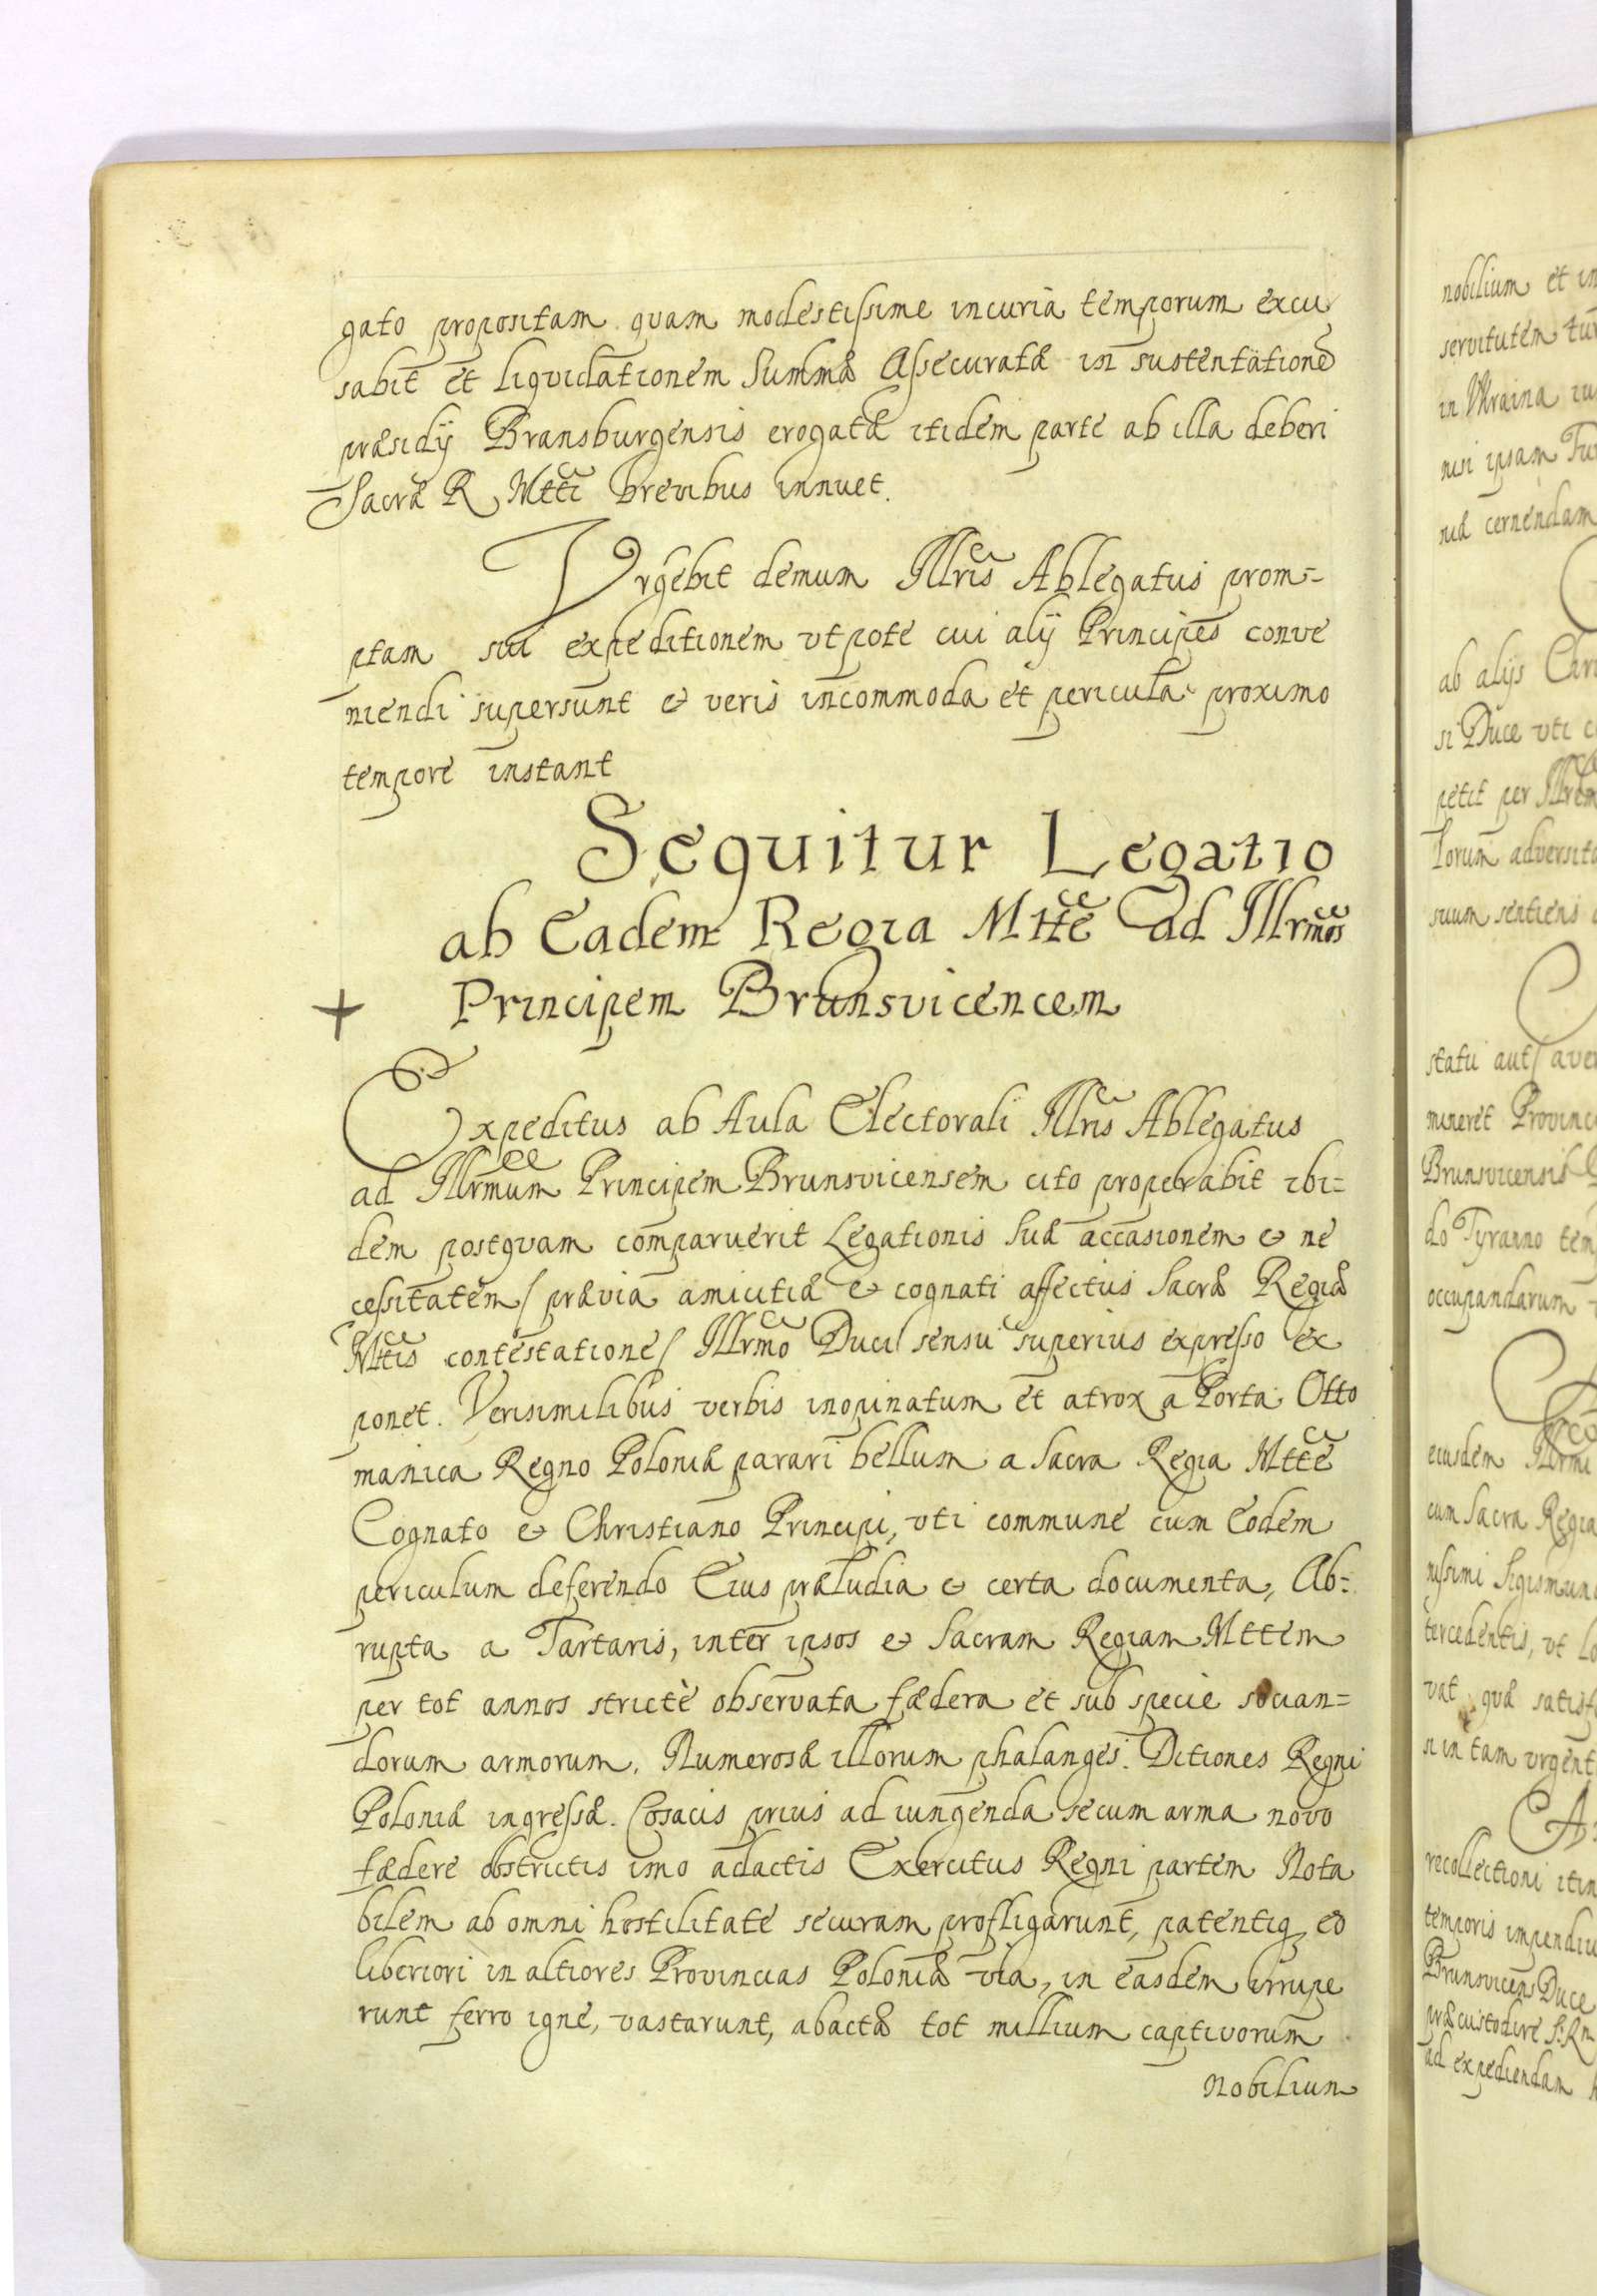 gato propositam quam modestissime incuria temporum excu
sabit et liquidationem Summæ Assecuratæ in sustentatione
præsidÿ Bransburgensis erogatæ itidem parte ab illa deberi
Sacræ R Mtti brevibus innuet.
Vrgebit demum Illris Ablegatus prom=
ptam sui expeditionem vtpote cui alÿ Principes conve
niendi supersunt & veris incommoda et pericula proximo
tempore instant
Sequitur Legatio
ab Eadem Regia Mtte ad Illrmos
+ Principem Brunsvicencem
Expeditus ab Aula Electorali Illris Ablegatus
ad Illrmum Principem Brunsvicensem cito properabit ibi=
dem postquam comparuerit Legationis Suæ accasionem & ne
cessitatem / prævia amicitiæ & cognati affectus Sacræ Regiæ
Mttis contestatione / Illrmo Duci sensu superius expresso ex
ponet. Verisimilibus verbis inopinatum et atrox a Porta Otto
manica Regno Poloniæ parari bellum a Sacra Regia Mtte
Cognato & Christiano Principi, vti commune cum Eodem
periculum deferendo Eius præludia & certa documenta, Ab=
rupta a Tartaris, inter ipsos & Sacram Regiam Mttem
per tot annos strictè observata fædera et sub specie socian=
dorum armorum. Numerosæ illorum phalanges. Ditiones Regni
Poloniæ ingressæ. Cosacis prius ad iungenda secum arma novo
fædere obstrictis imo adactis Exercitus Regni partem Nota
bilem ab omni hostilitate securam profligarunt, patentiq eo
liberiori in altiores Provincias Poloniæ via, in easdem irrupe
runt ferro igne, vastarunt, abactæ tot millium captivorum
Nobilium
nobilium et in
servitutem
in Vkraina
nisi ipsam
cernendam
ab alÿs
si Duce vti
petit per
adversita
suum sentiens
statu aut / aver
mineret Provinc
Brunsvicensis
do Tyranno tem
occupandarum
eiusdem Illrmi
cum Sacra Regia
nissimi Sigismun
tercedentis, vt
vat quæ satisf
si in tam vrgent
recollectioni itin
temporis impendiu
Brunsvicen Duce
præcustodire S: R
ad expediendam